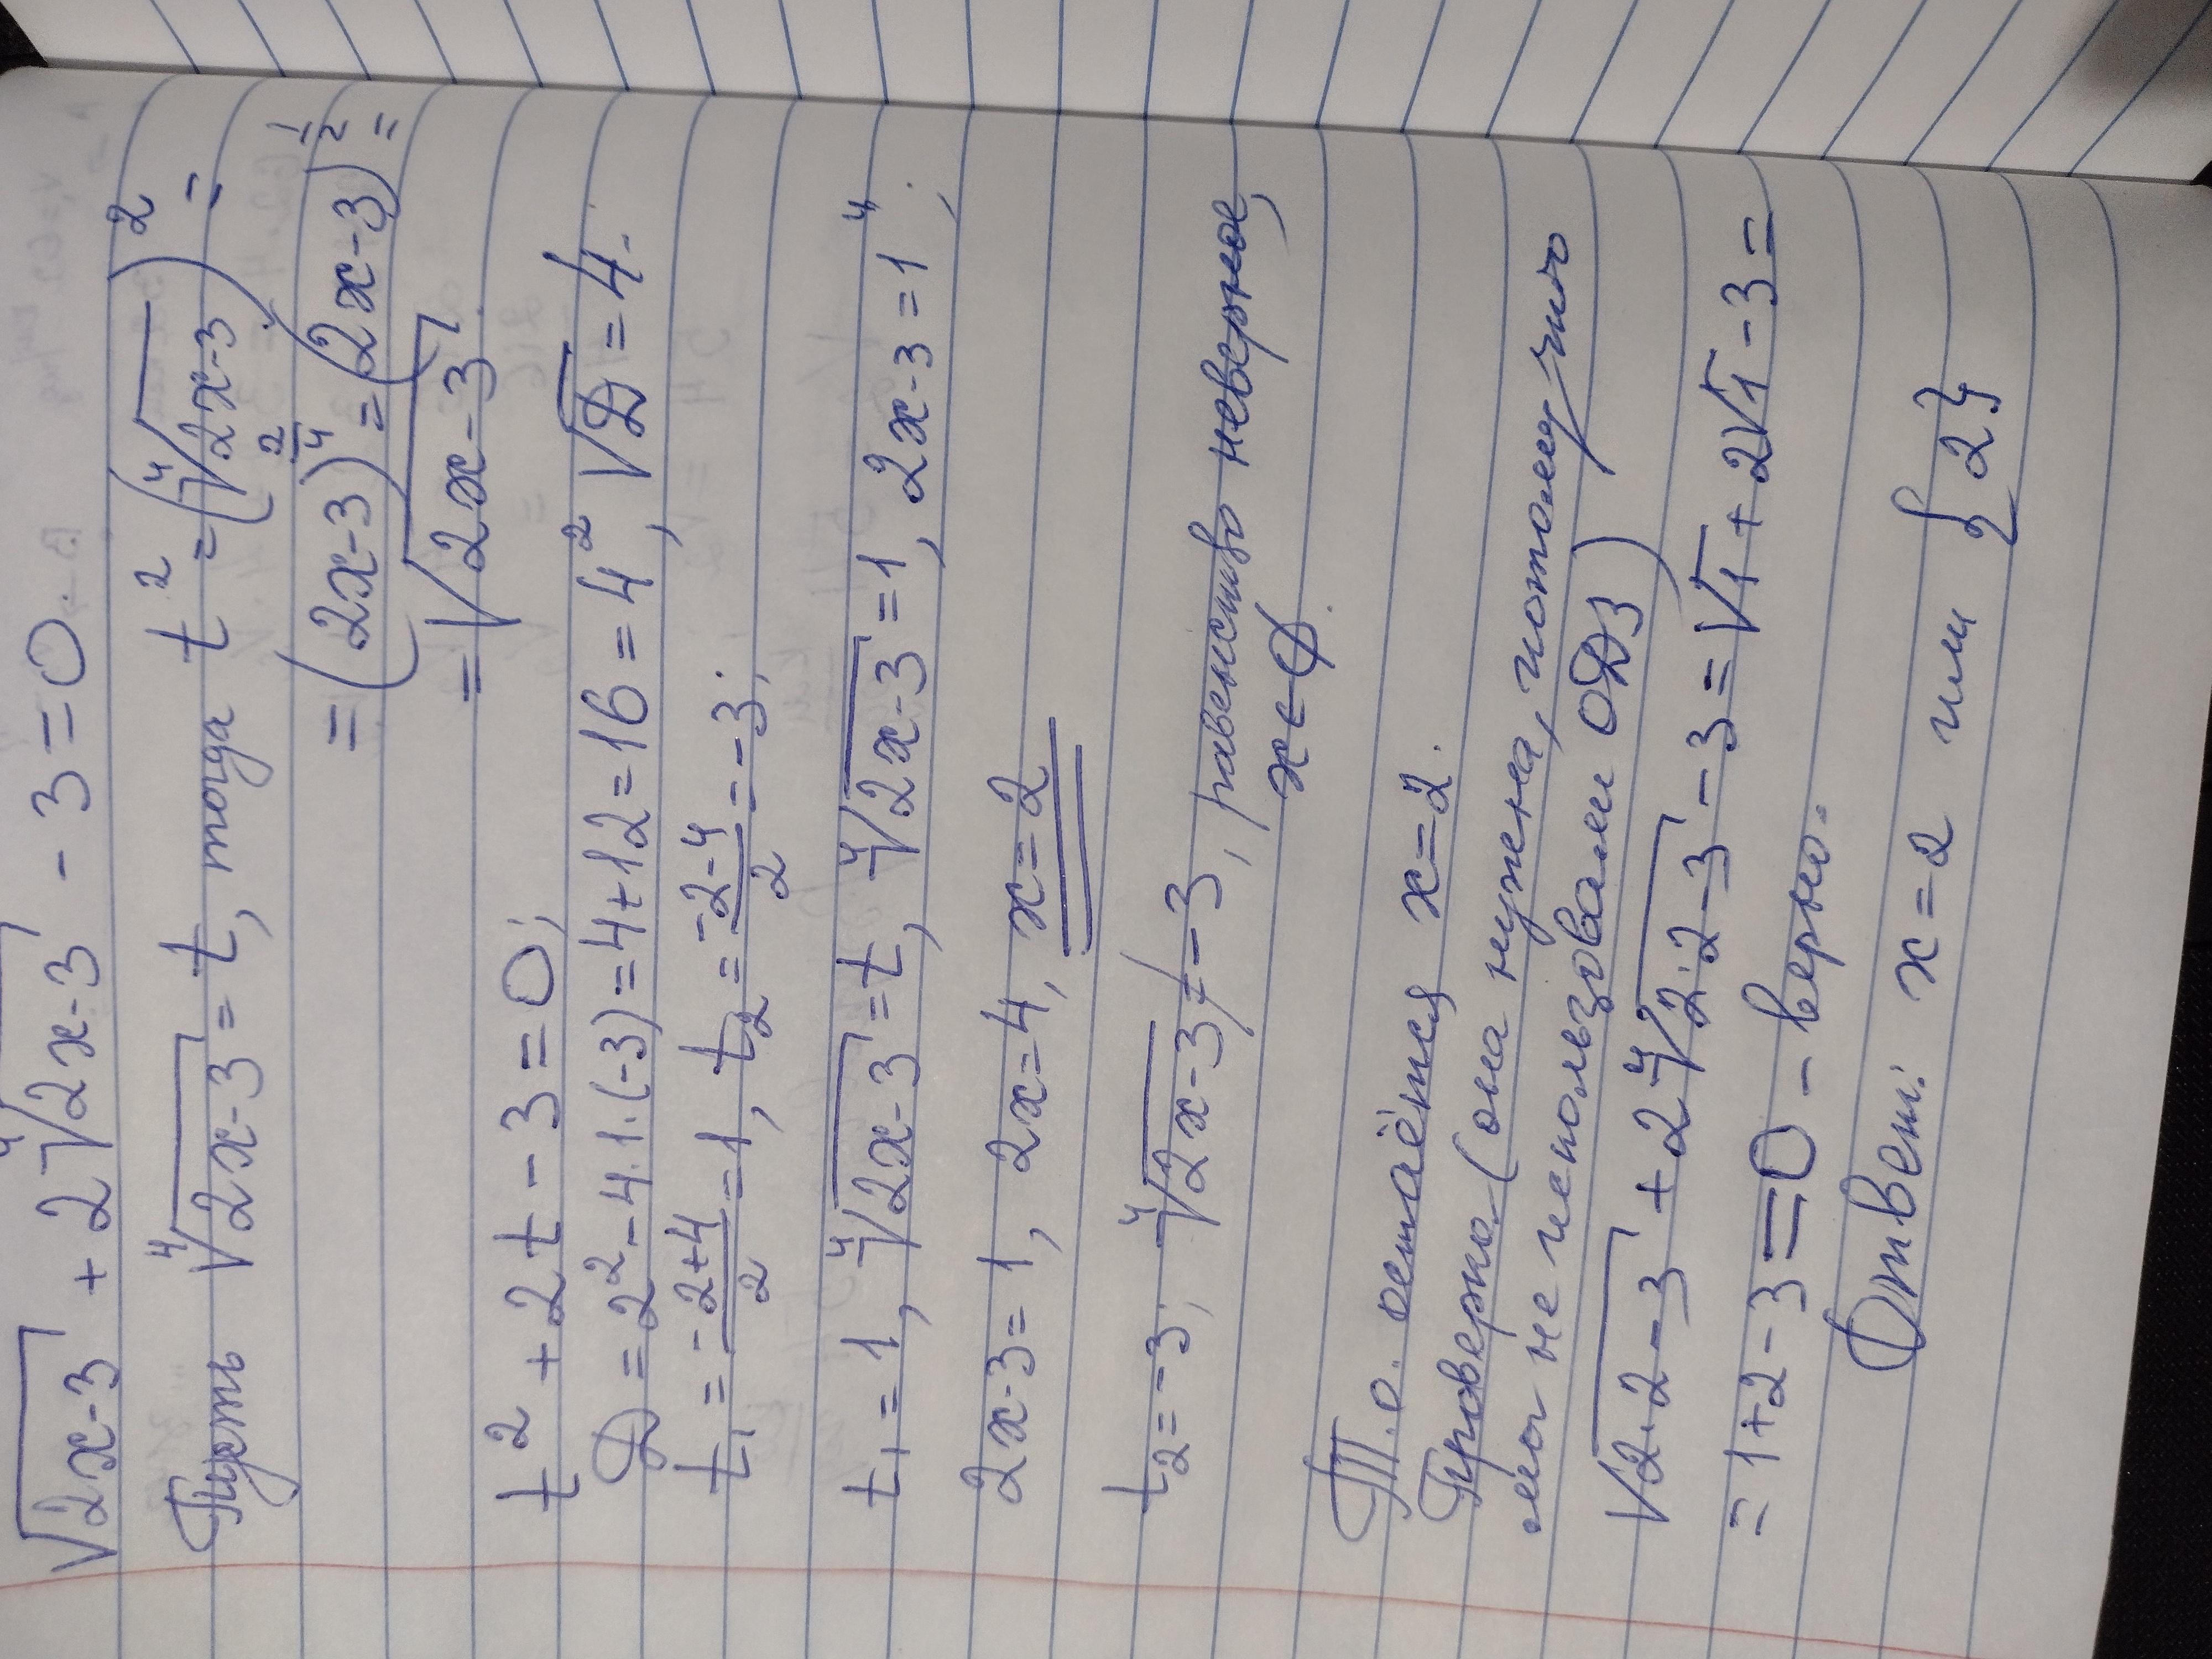 √(2x-3) + 2⁴√(2x-3) - 3 = 0.
Пусть ⁴√(2x-3) = t, тогда t² = (⁴√(2x-3))² =
= (2x-3)^(2/4) = (2x-3)^(1/2) =
= √(2x-3)
t² + 2t - 3 = 0;
D = 2² - 4·1·(-3) = 4+12 = 16 = 4², √D = 4.
t₁ = (-2+4)/2 = 1, t₂ = (-2-4)/2 = -3;
t₁ = 1, ⁴√(2x-3) = t, ⁴√(2x-3) = 1, 2x-3 = 1⁴;
2x-3 = 1, 2x = 4, x = 2
t₂ = -3; ⁴√(2x-3) ≠ -3, равенство неверное,
x ∈ ∅.
Т.о. остаётся x = 2.
Проверка (она нужна, потому что
мы не использовали ОДЗ)
√(2·2-3) + 2⁴√(2·2-3) - 3 = √1 + 2√1 - 3 =
= 1+2-3 = 0 - верно.
Ответ: x = 2 или {2}